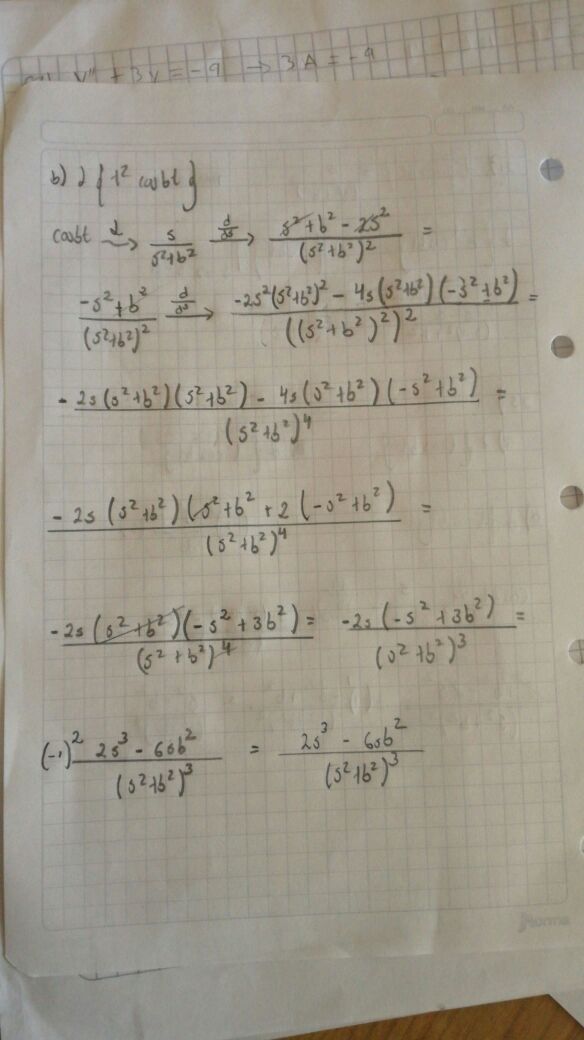 y'' + 3y = -9 → 3A = -9
b) L { t² cosbt }
cosbt L→ s/(s²+b²) d/ds→ (s²+b² - 2s²)/(s²+b²)² =
(-s²+b²)/(s²+b²)² d/ds→ (-2s²(s²+b²)² - 4s(s²+b²)(-s²+b²))/((s²+b²)²)² =
(-2s(s²+b²)(s²+b²) - 4s(s²+b²)(-s²+b²))/(s²+b²)⁴ =
(-2s(s²+b²)(s²+b² + 2(-s²+b²))/(s²+b²)⁴ =
(-2s(s²+b²)(-s²+3b²))/(s²+b²)⁴ = (-2s(-s²+3b²))/(s²+b²)³ =
(-1)² (2s³ - 6sb²)/(s²+b²)³ = (2s³ - 6sb²)/(s²+b²)³
Norma